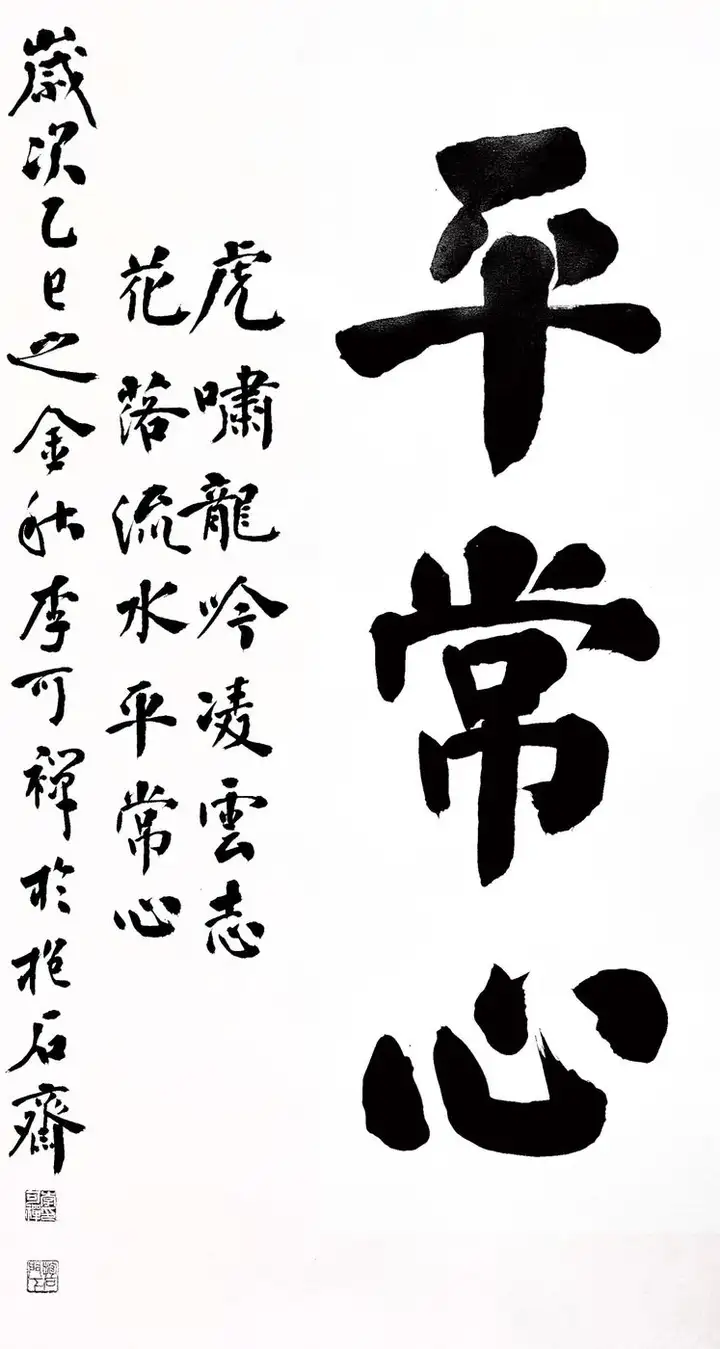 平常心
虎嘯龍吟凌雲志
花落流水平常心
歲次乙巳之金秋李可禪於抱石齋